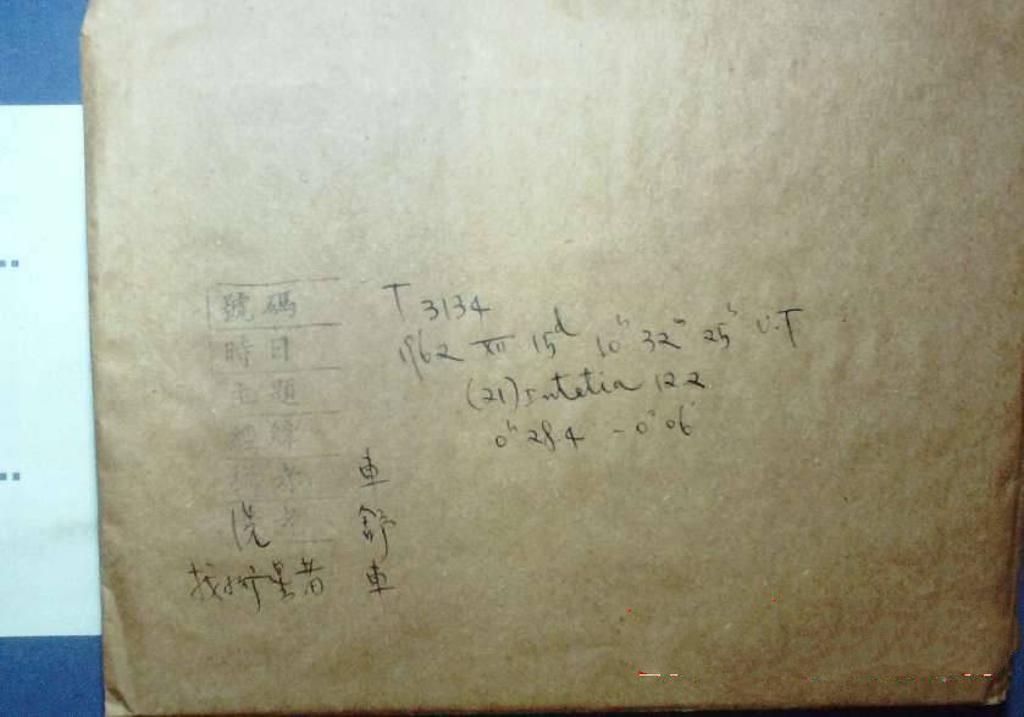 號碼 T 3134
時日 1962 XII 15d 10h 32m 25s U.T
主題 (21) Lutetia 12.2
0h 28.4 -0° 06'
車
洗 舒
找新星者 車